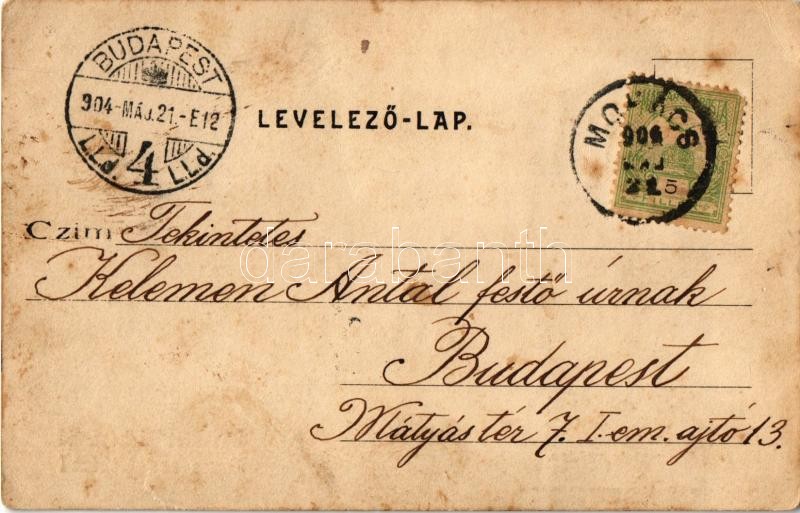 BUDAPEST
904-MÁJ.21.-E12
4
LEVELEZŐ-LAP.
MOHÁCS
904
MÁJ
21
5
Czim Tekintetes
darabanth
Kelemen Antal festő úrnak
Budapest
Mátyás tér 7. I-em. ajtó 13.